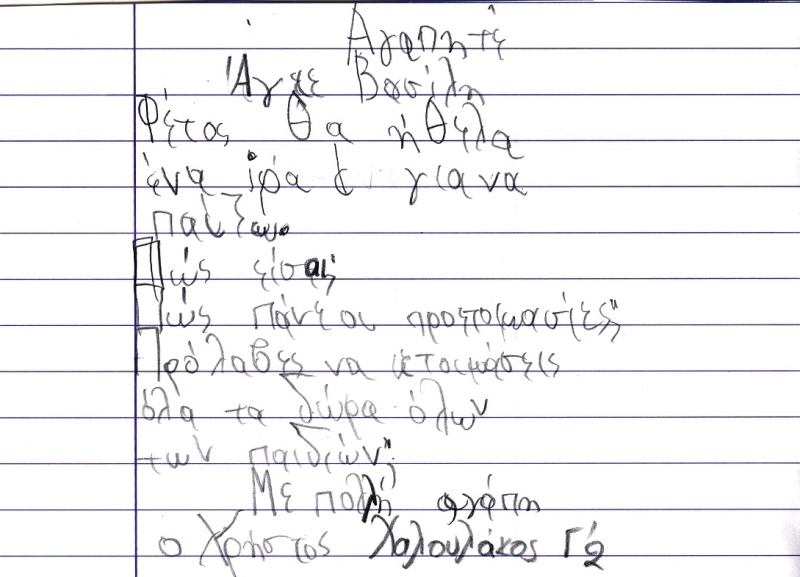 Αγαπητέ
Άγιε Βασίλη
Φέτος θα ήθελα
ένα για να
παίζω.
Πώς είσαι;
Πώς πάνε οι προετοιμασίες;
Πρόλαβες να ετοιμάσεις
όλα τα δώρα όλων
των παιδιών;
Με πολλή αγάπη
ο Χρήστος Χαλουλάκος Γ2